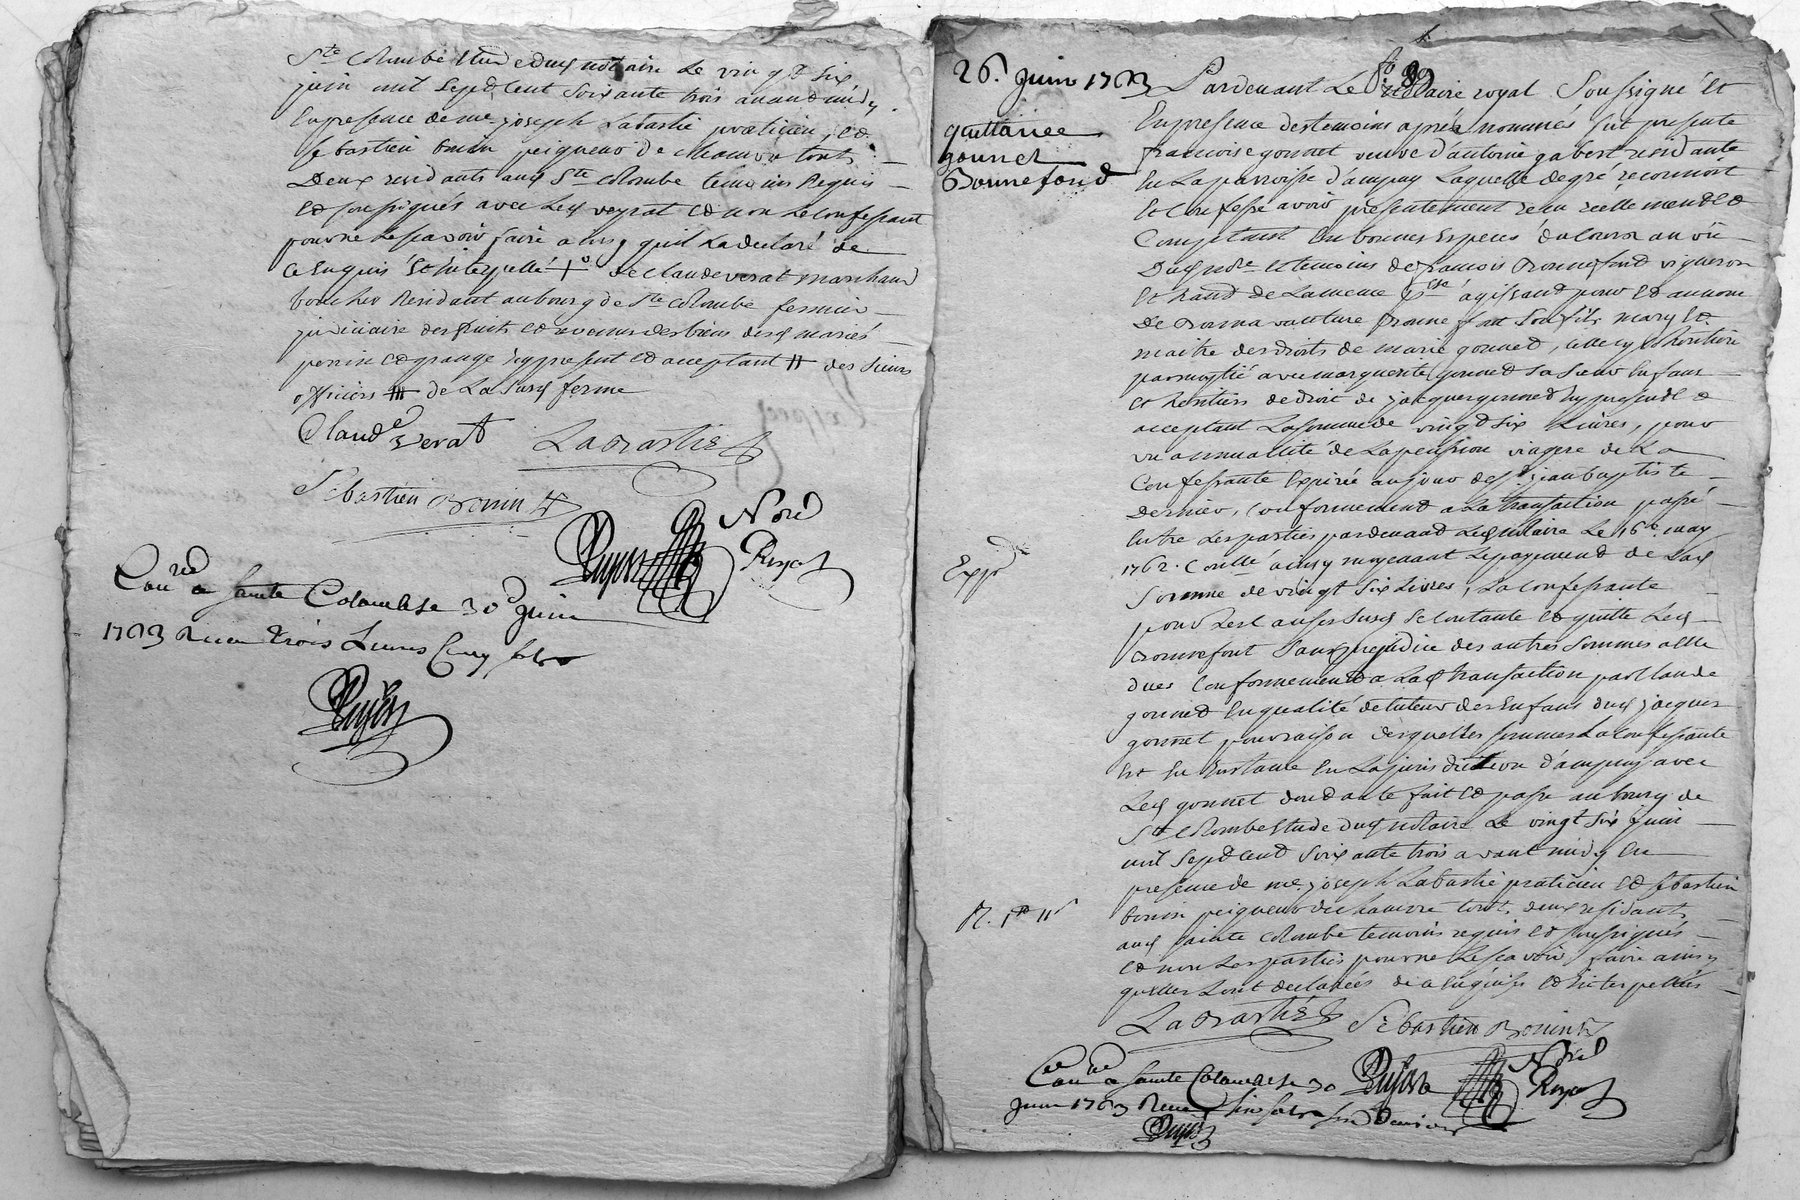 Ste Colombe Etude dud notaire Le vingt Six
juin mil Sept Cent Soixante trois avant midy
En presence de me joseph Labastie praticien, Et
Sebastien Bonin peigneur de chanvre touts
Deux residants aud Ste Colombe temoins Requis
Et Soussignés avec Led veyrat Et non Le Confessant
pour ne Le sçavoir faire ainsy qu'il La declaré de
Ce Enquis Et Interpellé + de Claude verat marchand
boucher Residant au bourg de Ste Colombe fermier
judiciaire des fruits Et revenus des biens desd mariés
perrin Et grange icy present Et acceptant # des Sieurs
officiers de La Susd ferme
Claude verat Labastie
Sebastien Bonin
Pujon Nore Royal
Con.e a Sainte Colombe 30 juin
1763 Receu trois Livres Cinq sols
Pujon
26. Juin 1763
quittance
gonnet
Bonnefond
fo 89
Pardevant Le notaire royal Soussigné Et
En presence des temoins aprés nommés fut presente
francoise gonnet veuve d'antoine gabert residante
En La parroisse d'ampuy Laquelle de gré reconnoit
Et Confesse avoir presentement reçu réellement Et
Comptant En bonnes Especes du Cours au vû
Dud nore Et temoins de francois Bonnefond vigneron
Et hand de La meme psse agissant pour Et au nom
De Bonnavanture Bonnefont Son fils mary Et
maitre des droits de marie gonnet, Celle cy Cohéritiere
par moytié avec marguerite gonnet Sa Sœur Enfans
Et heritiers de droit de jacques gonnet icy present Et
acceptant La Somme de vingt Six Livres, pour
une annuallité de La pension viagere de La
Confessante Expirée au jour de St jean baptiste
Dernier, Conformement a La transaction passé
Entre Les parties pardevant Led notaire Le 16e may
1762. Et ainsy moyenant Le payement de Lad
Somme de vingt Six Livres, La Confessante
pour Les Causes Susd Se Contante Et quitte Led
Bonnefont Sans prejudice des autres Sommes a Elle
dues Conformement a Lad transaction par Claude
gonnet En qualité de tuteur des Enfans dud jacques
gonnet pour raison desquelles Sommes La Confessante
Est En Instance En La jurisdiction d'ampuy avec
Led gonnet dont acte fait Et passé au bourg de
Ste Colombe Etude dud notaire Le vingt Six juin
mil Sept Cent Soixante trois avant midy En
presence de me joseph Labastie praticien Et Sebastien
bonin peigneur de chanvre touts deux residants
aud Sainte Colombe temoins requis Et Soussignés
Et non Les parties pour ne Le sçavoir faire ainsy
qu'elles L'ont declarées de ce Enquises Et Interpellées
Expd
Labastie Sebastien Bonin
Con.e a Sainte Colombe 30 Pujon Nore Royal
Juin 1763 Receu Six sols Six deniers
Pujon